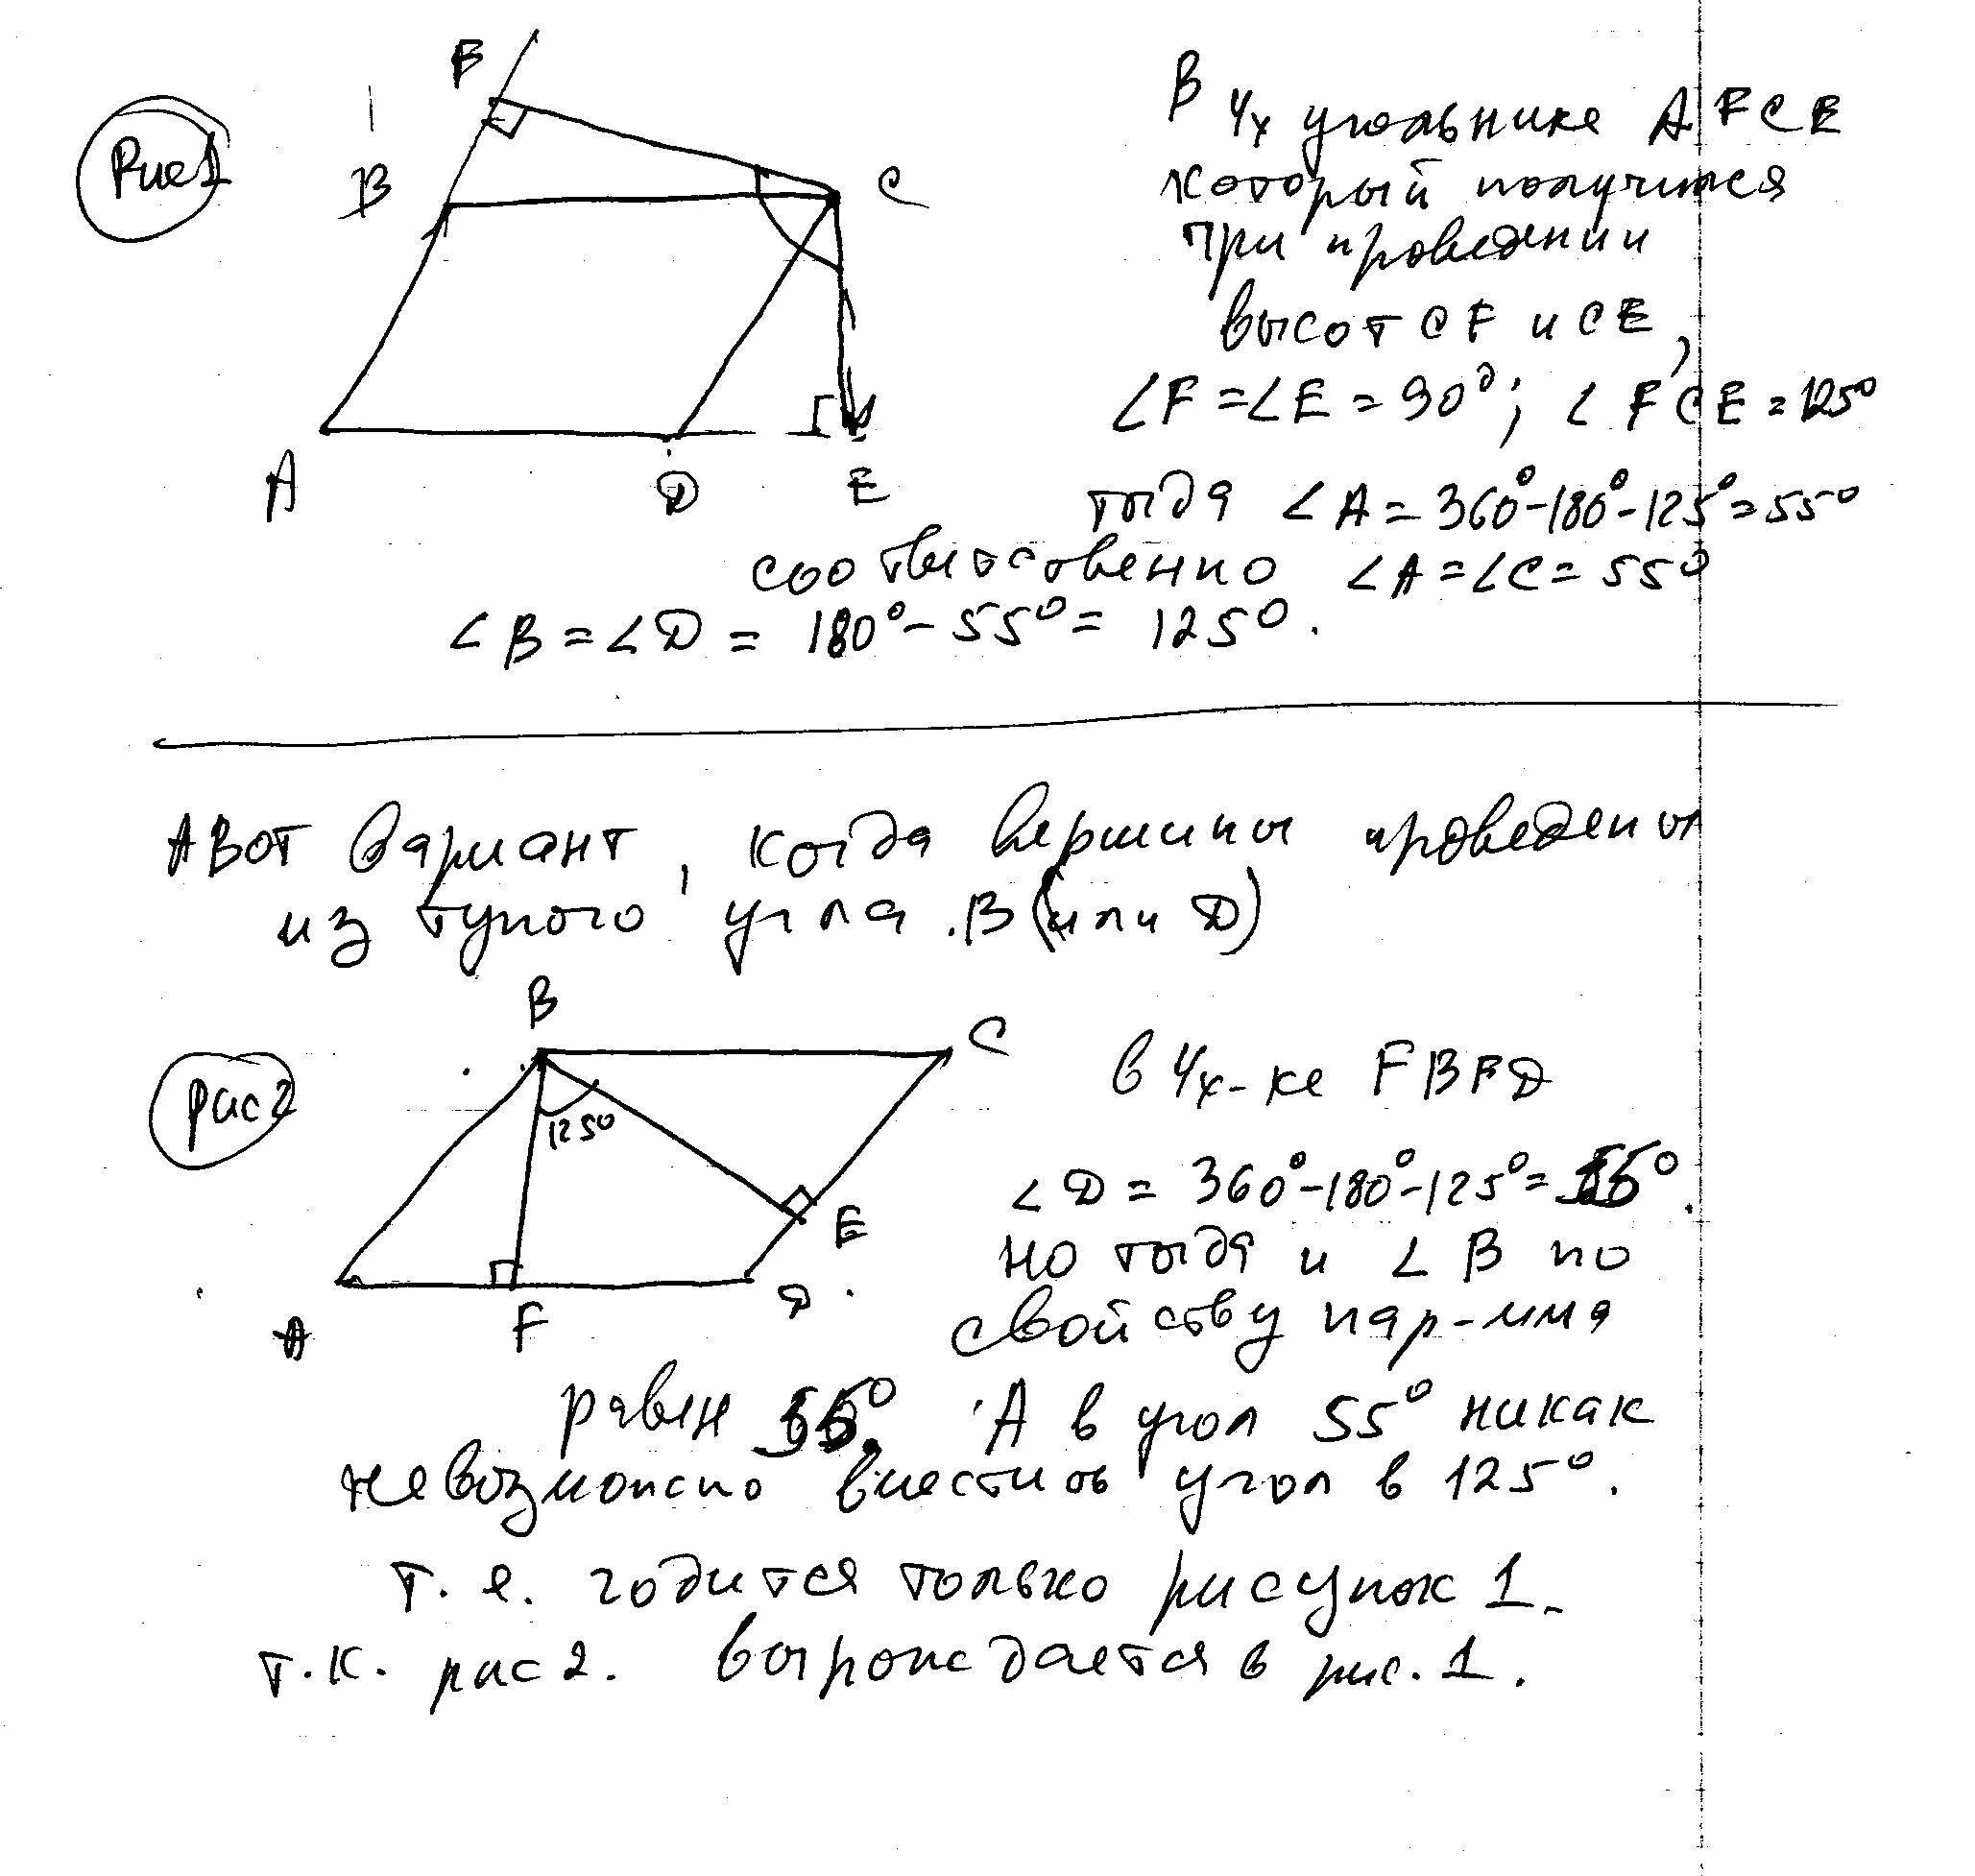 Рис 1
F
B
C
A
D
E
В 4х угольнике AFCE
который получится
при проведении
высот CF и CE,
∠F = ∠E = 90°; ∠FCE = 125°
тогда ∠A = 360°-180°-125° = 55°
соответственно ∠A = ∠C = 55°
∠B = ∠D = 180° - 55° = 125°.
А вот вариант, когда вершины проведены
из тупого угла B (или D)
рис 2
B
C
125°
E
A
F
D
в 4х-ке FBED
∠D = 360°-180°-125° = 55°.
но тогда и ∠B по
свойству пар-мма
равен 55°. А в угол 55° никак
невозможно вместить угол в 125°.
т.е. годится только рисунок 1.
т.к. рис 2. вырождается в рис. 1.